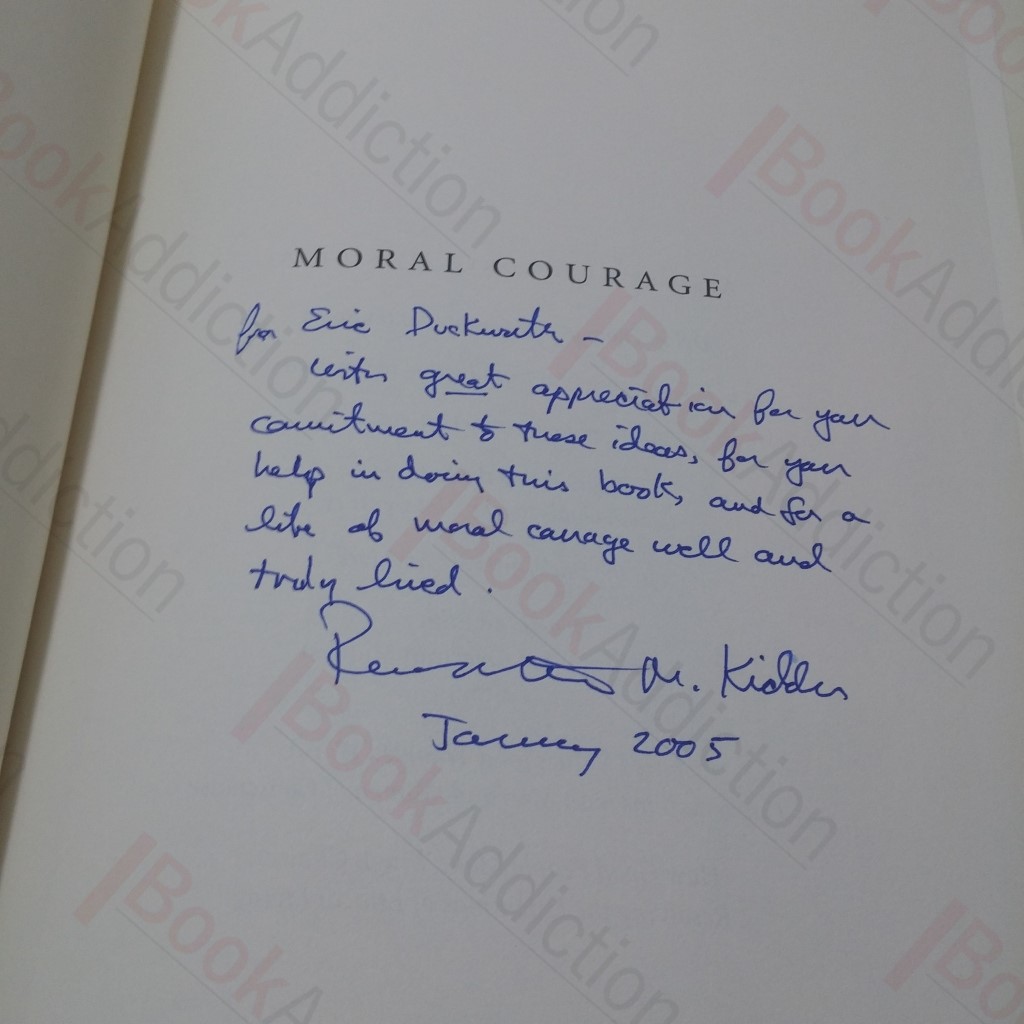 MORAL COURAGE
for Eric Duckworth –
with great appreciation for your
commitment to these ideas, for your
help in doing this book, and for a
life of moral courage well and
truly lived.
Rushworth M. Kidder
January 2005
BookAddiction
BookAddiction
BookAddiction
BookAddiction
BookAddiction